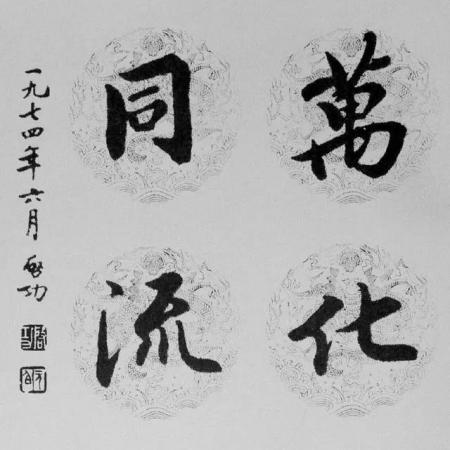 萬化
同流
一九七四年六月啟功